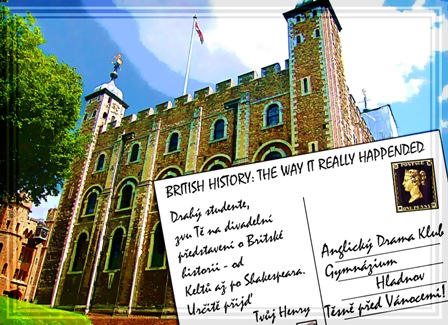 BRITISH HISTORY: THE WAY IT REALLY HAPPENDED
POSTAGE
ONE PENNY
Drahý studente,
zvu Tě na divadelní
představení o Britské
historii - od
Keltů až po Shakespeara.
Určitě přijď
Tvůj Henry
Anglický Drama Klub
Gymnázium
Hladnov
Těsně před Vánocemi!